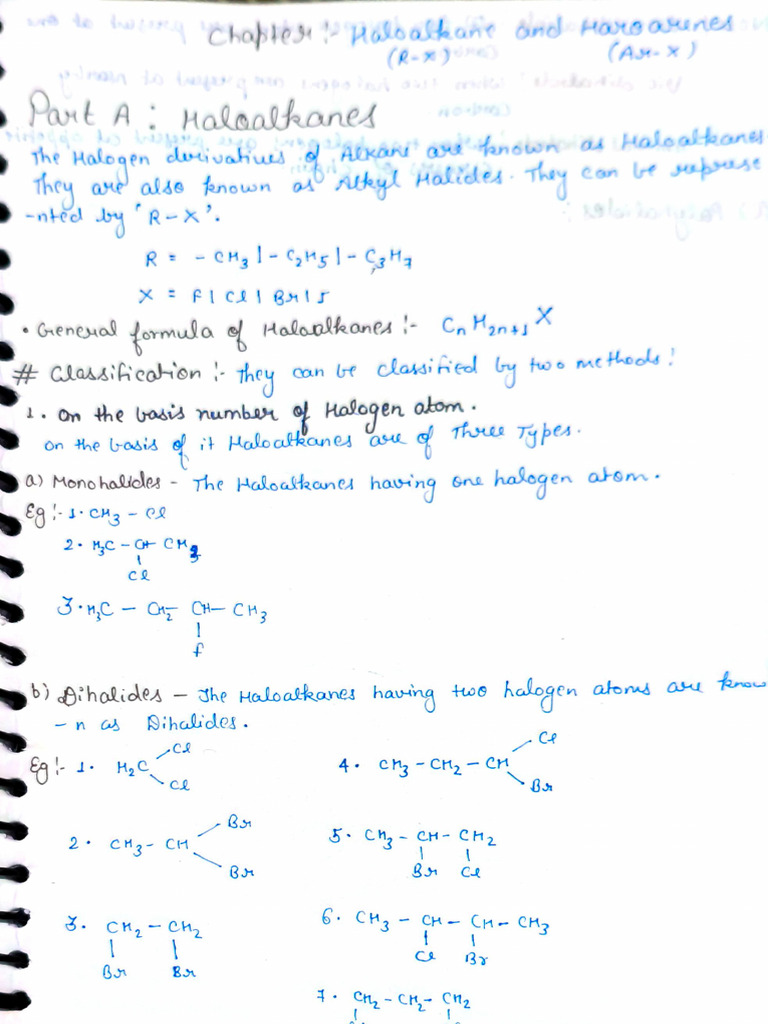 Chapter :- Haloalkane and Haroarenes
(R-X) (Ar-X)
Part A : Haloalkanes
The Halogen derivatives of Alkane are known as Haloalkanes.
They are also known as Alkyl Halides. They can be represe
-nted by 'R-X'.
R = - CH3 | - C2H5 | - C3H7
X = F | Cl | Br | I
• General formula of Haloalkanes :- CnH2n+1 X
# Classification :- They can be classified by two methods :
1. On the basis number of Halogen atom.
On the basis of it Haloalkanes are of Three Types.
a) Monohalides - The Haloalkanes having one halogen atom.
Eg :- 1. CH3 - Cl
2. H3C - CH - CH3
Cl
3. H3C - CH2 - CH - CH3
F
b) Dihalides - The Haloalkanes having two halogen atoms are know
-n as Dihalides.
Eg :- 1. H2C Cl Cl
2. CH3 - CH Br Br
3. CH2 - CH2
Br Br
4. CH3 - CH2 - CH Cl Br
5. CH3 - CH - CH2
Br Cl
6. CH3 - CH - CH - CH3
Cl Br
7. CH2 - CH2 - CH2